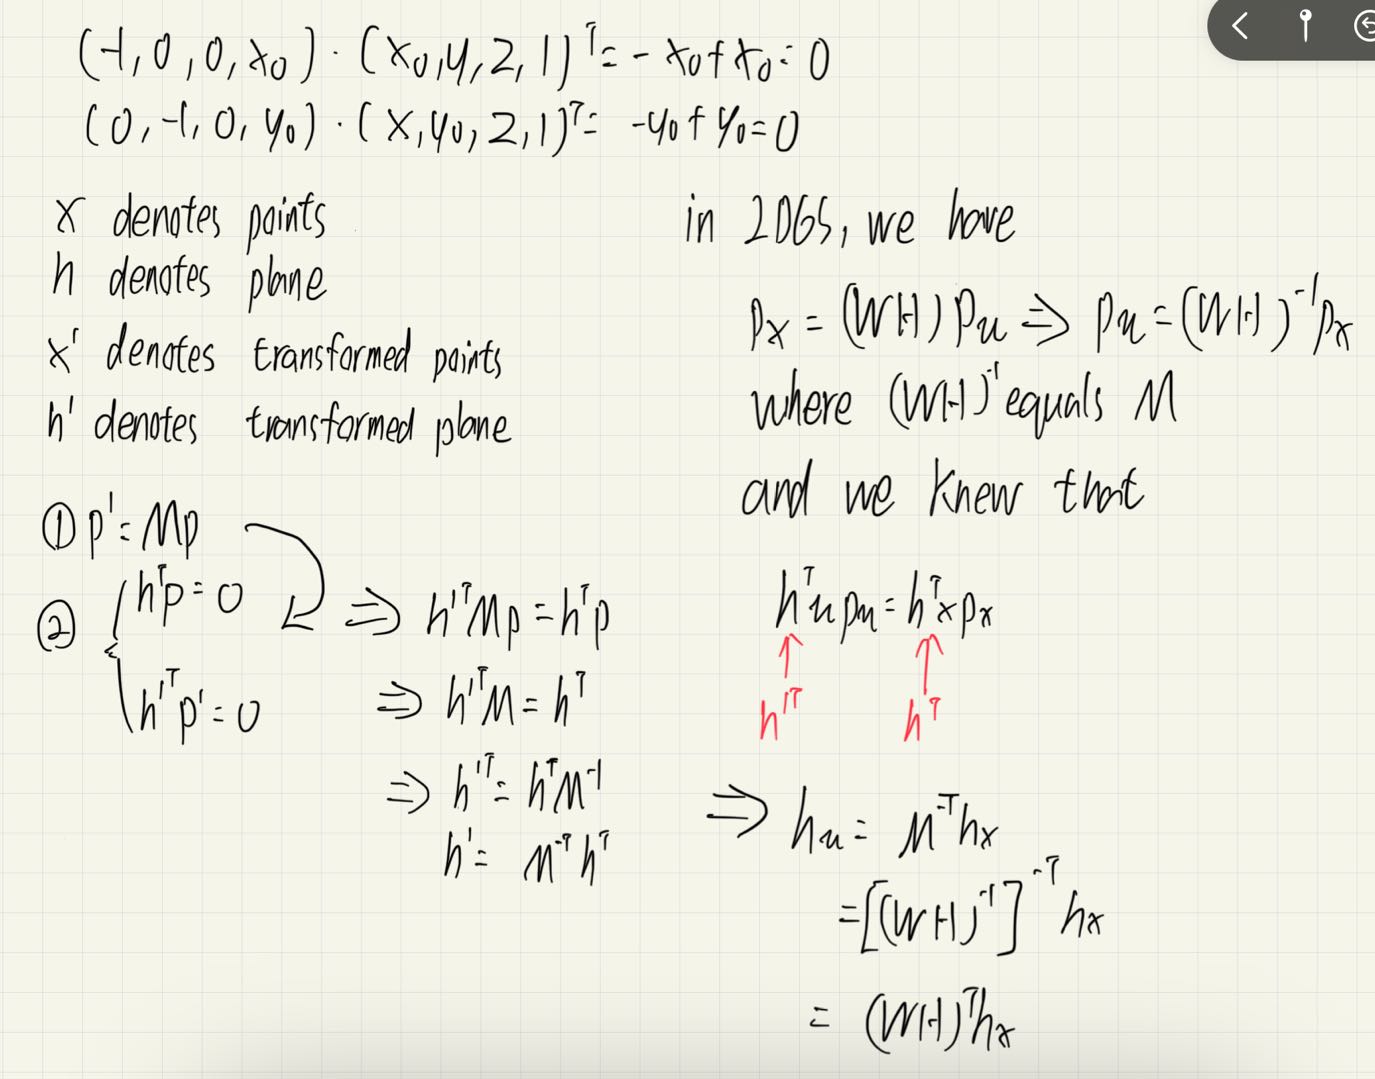 (-1, 0, 0, x₀) · (x₀, y, z, 1)ᵀ = - x₀ + x₀ = 0
(0, -1, 0, y₀) · (x, y₀, z, 1)ᵀ = -y₀ + y₀ = 0
x denotes points
h denotes plane
x' denotes transformed points
h' denotes transformed plane
① p' = Mp
② { hᵀp = 0
h'ᵀp' = 0
⇒ h'ᵀMp = hᵀp
⇒ h'ᵀM = hᵀ
⇒ h'ᵀ = hᵀM⁻¹
h' = M⁻ᵀhᵀ
in 2DGS, we have
pₓ = (WH)pᵤ ⇒ pᵤ = (WH)⁻¹pₓ
where (WH)⁻¹ equals M
and we knew that
hᵀᵤpᵤ = hᵀₓpₓ
↑ ↑
h'ᵀ hᵀ
⇒ hᵤ = M⁻ᵀhₓ
= [(WH)⁻¹]⁻ᵀ hₓ
= (WH)ᵀhₓ